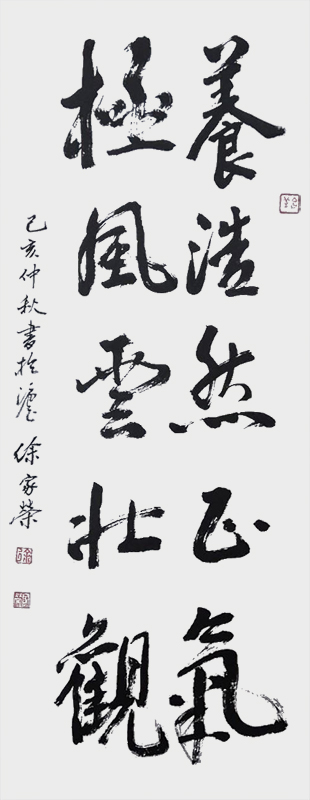 養浩然正氣
極風雲壯觀
己亥仲秋書於滬上徐家榮